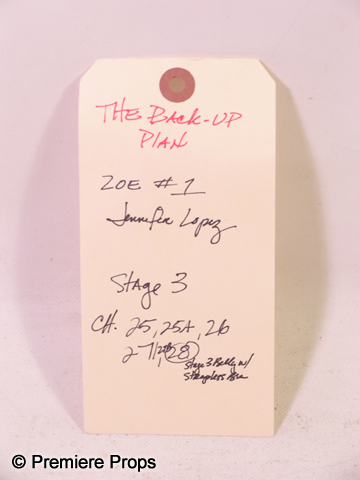 THE BACK-UP
PLAN
ZOE #1
Jennifer Lopez
Stage 3
CH. 25, 25A, 26
27, 28
Stage 3 Belly w/
Strapless Bra
© Premiere Props